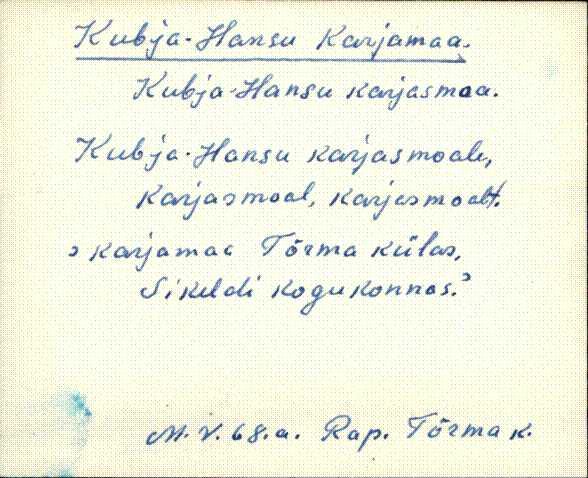 Kubja-Hansu Karjamaa.
Kubja-Hansu karjasmaa.
Kubja-Hansu karjasmoale,
karjasmoal, karjasmoalt.
> karjamaa Tõrma külas,
Sikeldi kogukonnas.>
M. V. 68. a. Rap. Tõrma k.